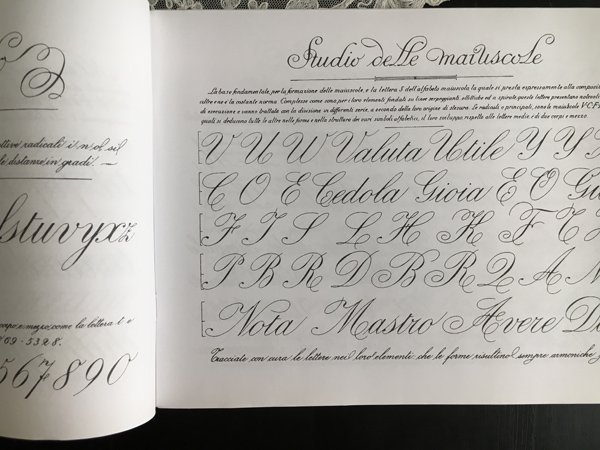 ttive radicali i n ol sil
le distanze in gradi. —
lstuvyxz
corpo e mezzo, come la lettera t e
69 - 53 2 8.
567890
Studio delle maiuscole
La base fondamentale, per la formazione delle maiuscole, e la lettera S dell'alfabeto maiuscolo la quale si presta espressamente alla composizi
altre ene e la costante norma. Complesse come sono, per i loro elementi fondati su linee serpeggianti ellittiche ed a spirale queste lettere presentano notevoli
di esecuzione e vanno trattate con la divisione in differenti serie, a seconda della loro origine di stesura. Le radicali o principali, sono le maiuscole V C F P
quali si deducono tutte le altre nelle forme e nelle strutture dei vari simboli alfabetici, il loro sviluppo rispetto alle lettere medie è di due corpi e mezzo.
V U W W Valuta Utile Y Y
C O E Cedola Gioia E O G
F I S L H K F T
P B R D B R Q A N
Nota Mastro Avere D
Tracciate con cura le lettere nei loro elementi che le forme risultino sempre armoniche